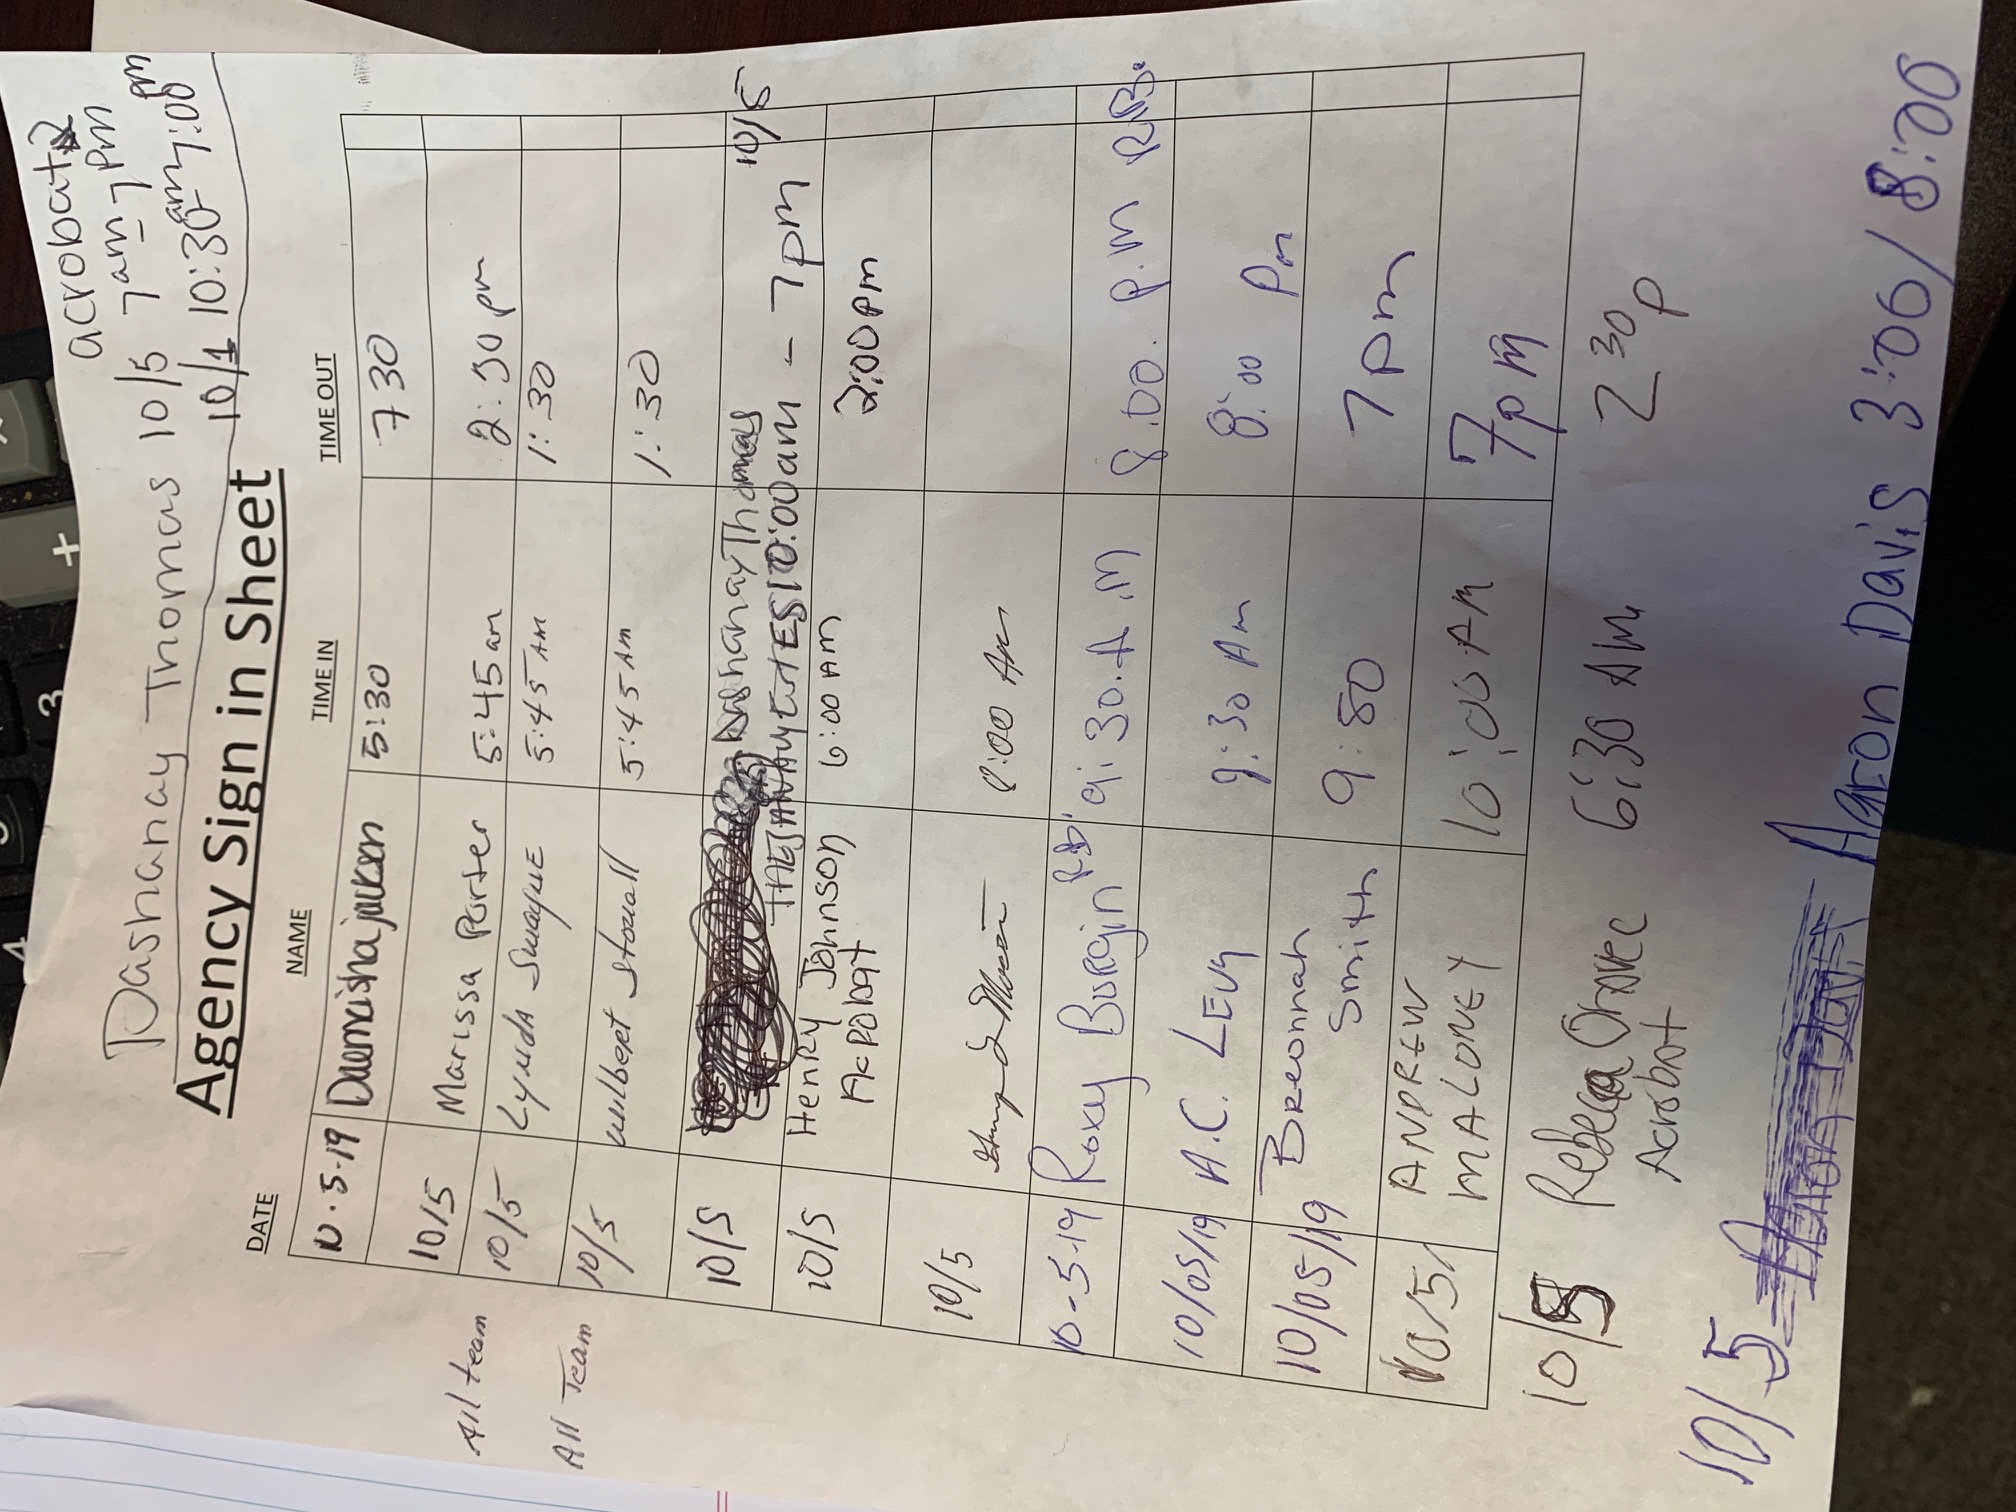 acrobat
Dashanay Thomas 10/5 7am-7pm
10/1 10:30am-7:00pm
Agency Sign in Sheet
DATE NAME TIME IN TIME OUT
10.5.19 5:30 7 30
10/5 Marissa Porter 5:45 am 2:30 pm
All team 10/5 Lynda Swayne 5:45 AM 1:30
All Team 10/5 Wilbert Stovall 5:45 AM 1:30
10/5 Dashanay Thomas 10/5
10:00am - 7pm
10/5 Henry Johnson 6:00 AM 2:00pm
Acrobat
10/5 :00 Am
10-5-19 Roxy Burgin R.B. 9:30.A.M 8:00. P.M R.B.
10/05/19 A.C. Levy 9:30 Am 8:00 Pm
10/05/19 Breonnah 9:80 7pm
Smith
10/5/ ANDREW 10:00 AM 7pm
MALONEY
10/5 Rebecca 6:30 AM 2 30 p
Acrobat
10/5 Aaron Davis 3:06/8:00